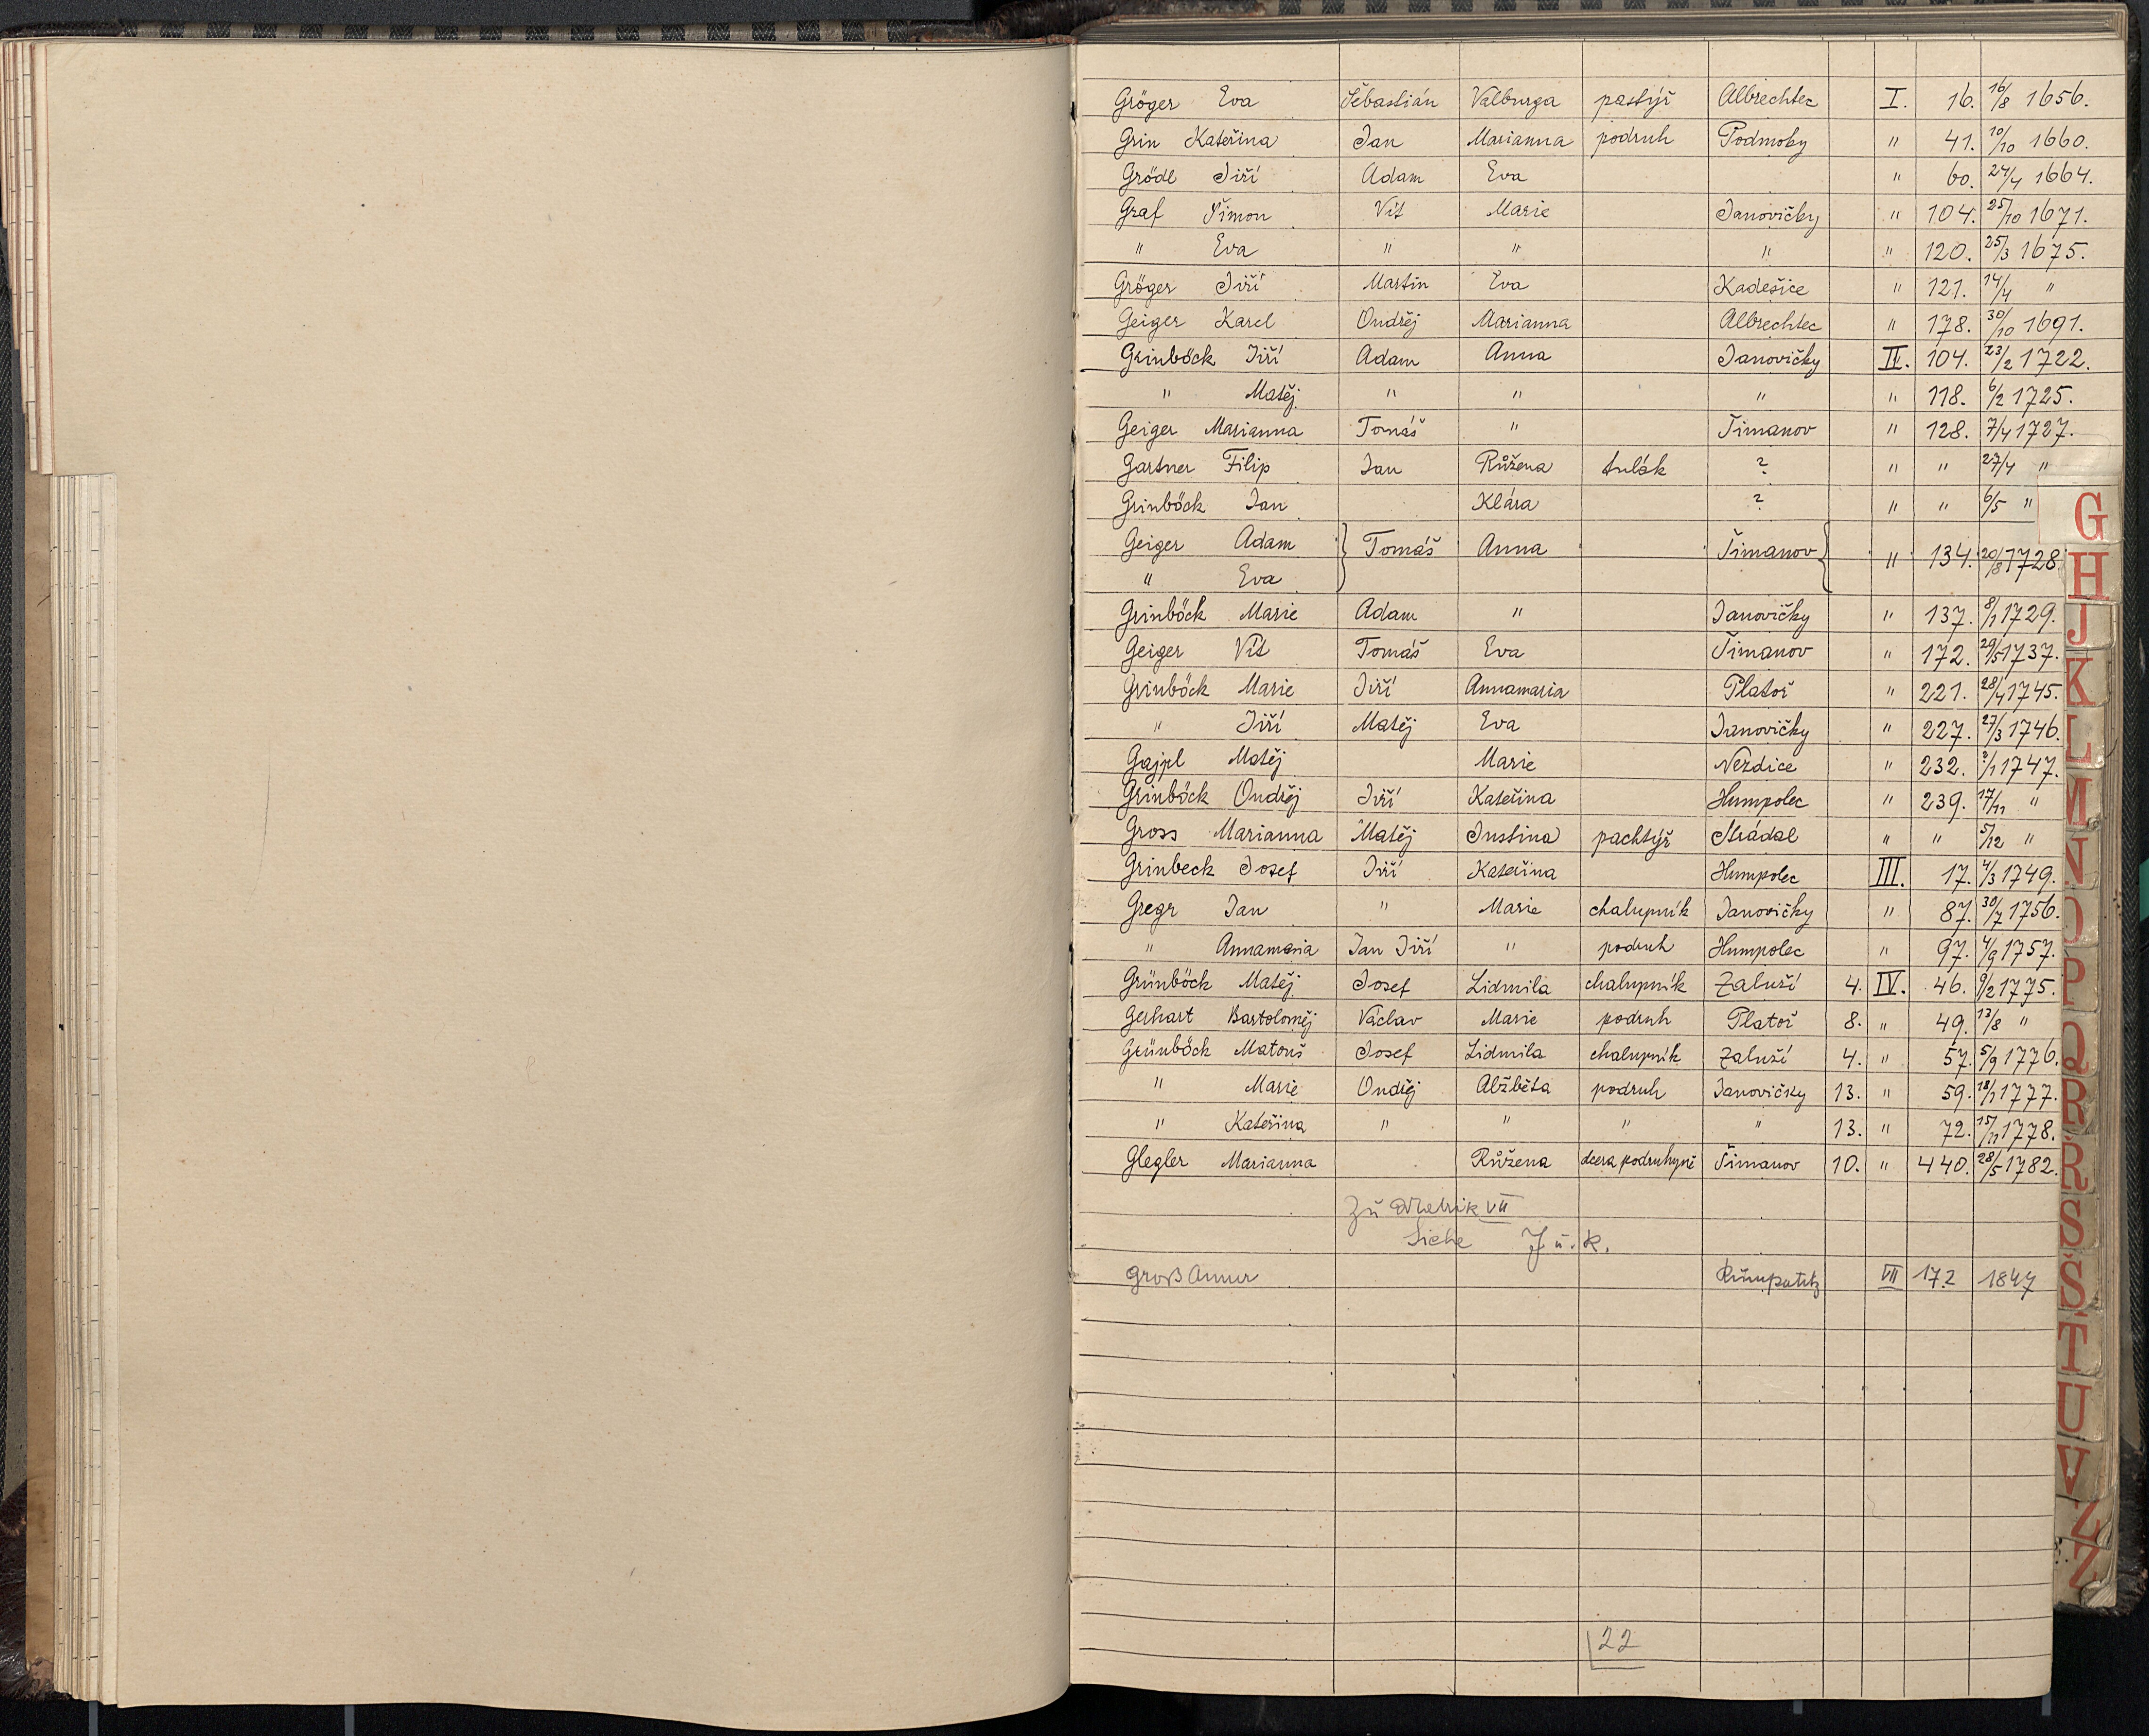 Gröger Eva Šebastián Valburga pastýř Albrechtec I. 16. 16/8 1656.
Grin Kateřina Jan Marianna podruh Podmoky " 41. 10/10 1660.
Grödl Jiří Adam Eva " 60. 24/4 1664.
Graf Šimon Vít Marie Janovičky " 104. 25/10 1671.
" Eva " " " " 120. 25/3 1675.
Gröger Jiří Martin Eva Kadešice " 121. 14/4 "
Geiger Karel Ondřej Marianna Albrechtec " 178. 30/10 1691.
Grinböck Jiří Adam Anna Janovičky II. 104. 23/2 1722.
" Matěj " " " " 118. 6/2 1725.
Geiger Marianna Tomáš " Šimanov " 128. 7/4 1727.
Gartner Filip Jan Růžena tulák ? " " 27/4 "
Grinböck Jan Klára ? " " 6/5 "
Geiger Adam } Tomáš Anna Šimanov } " 134. 20/8 1728
" Eva
Grinböck Marie Adam " Janovičky " 137. 8/1 1729.
Geiger Vít Tomáš Eva Šimanov " 172. 29/5 1737.
Grinböck Marie Jiří Annamaria Platoř " 221. 28/4 1745.
" Jiří Matěj Eva Janovičky " 227. 27/3 1746.
Gajpl Matěj Marie Nezdice " 232. /1 1747.
Grinböck Ondřej Jiří Kateřina Humpolec " 239. 17/11 "
Gross Marianna Matěj Justina pachtýř Strádal " " 5/12 "
Grinbeck Josef Jiří Kateřina Humpolec III. 17. 4/3 1749.
Gregr Jan " Marie chalupník Janovičky " 87. 30/7 1756.
" Annamaria Jan Jiří " podruh Humpolec " 97. 4/9 1757.
Grünböck Matěj Josef Lidmila chalupník Zaluží 4. IV. 46. 9/2 1775.
Gerhart Bartoloměj Václav Marie podruh Platoř 8. " 49. 13/8 "
Grünböck Matouš Josef Lidmila chalupník Zaluží 4. " 57. 5/9 1776.
" Marie Ondřej Alžběta podruh Janovičky 13. " 59. 18/1 1777.
" Kateřina " " " " 13. " 72. 15/11 1778.
Glegler Marianna Růžena dcera podruhyně Šimanov 10. " 440. 28/5 1782.
Zu Matrik VII
Siehe J u. K.
Groß Anna VII 172 1847
22
G
H
J
K
L
M
N
O
P
Q
R
Ř
S
Š
T
U
V
Z
Ž